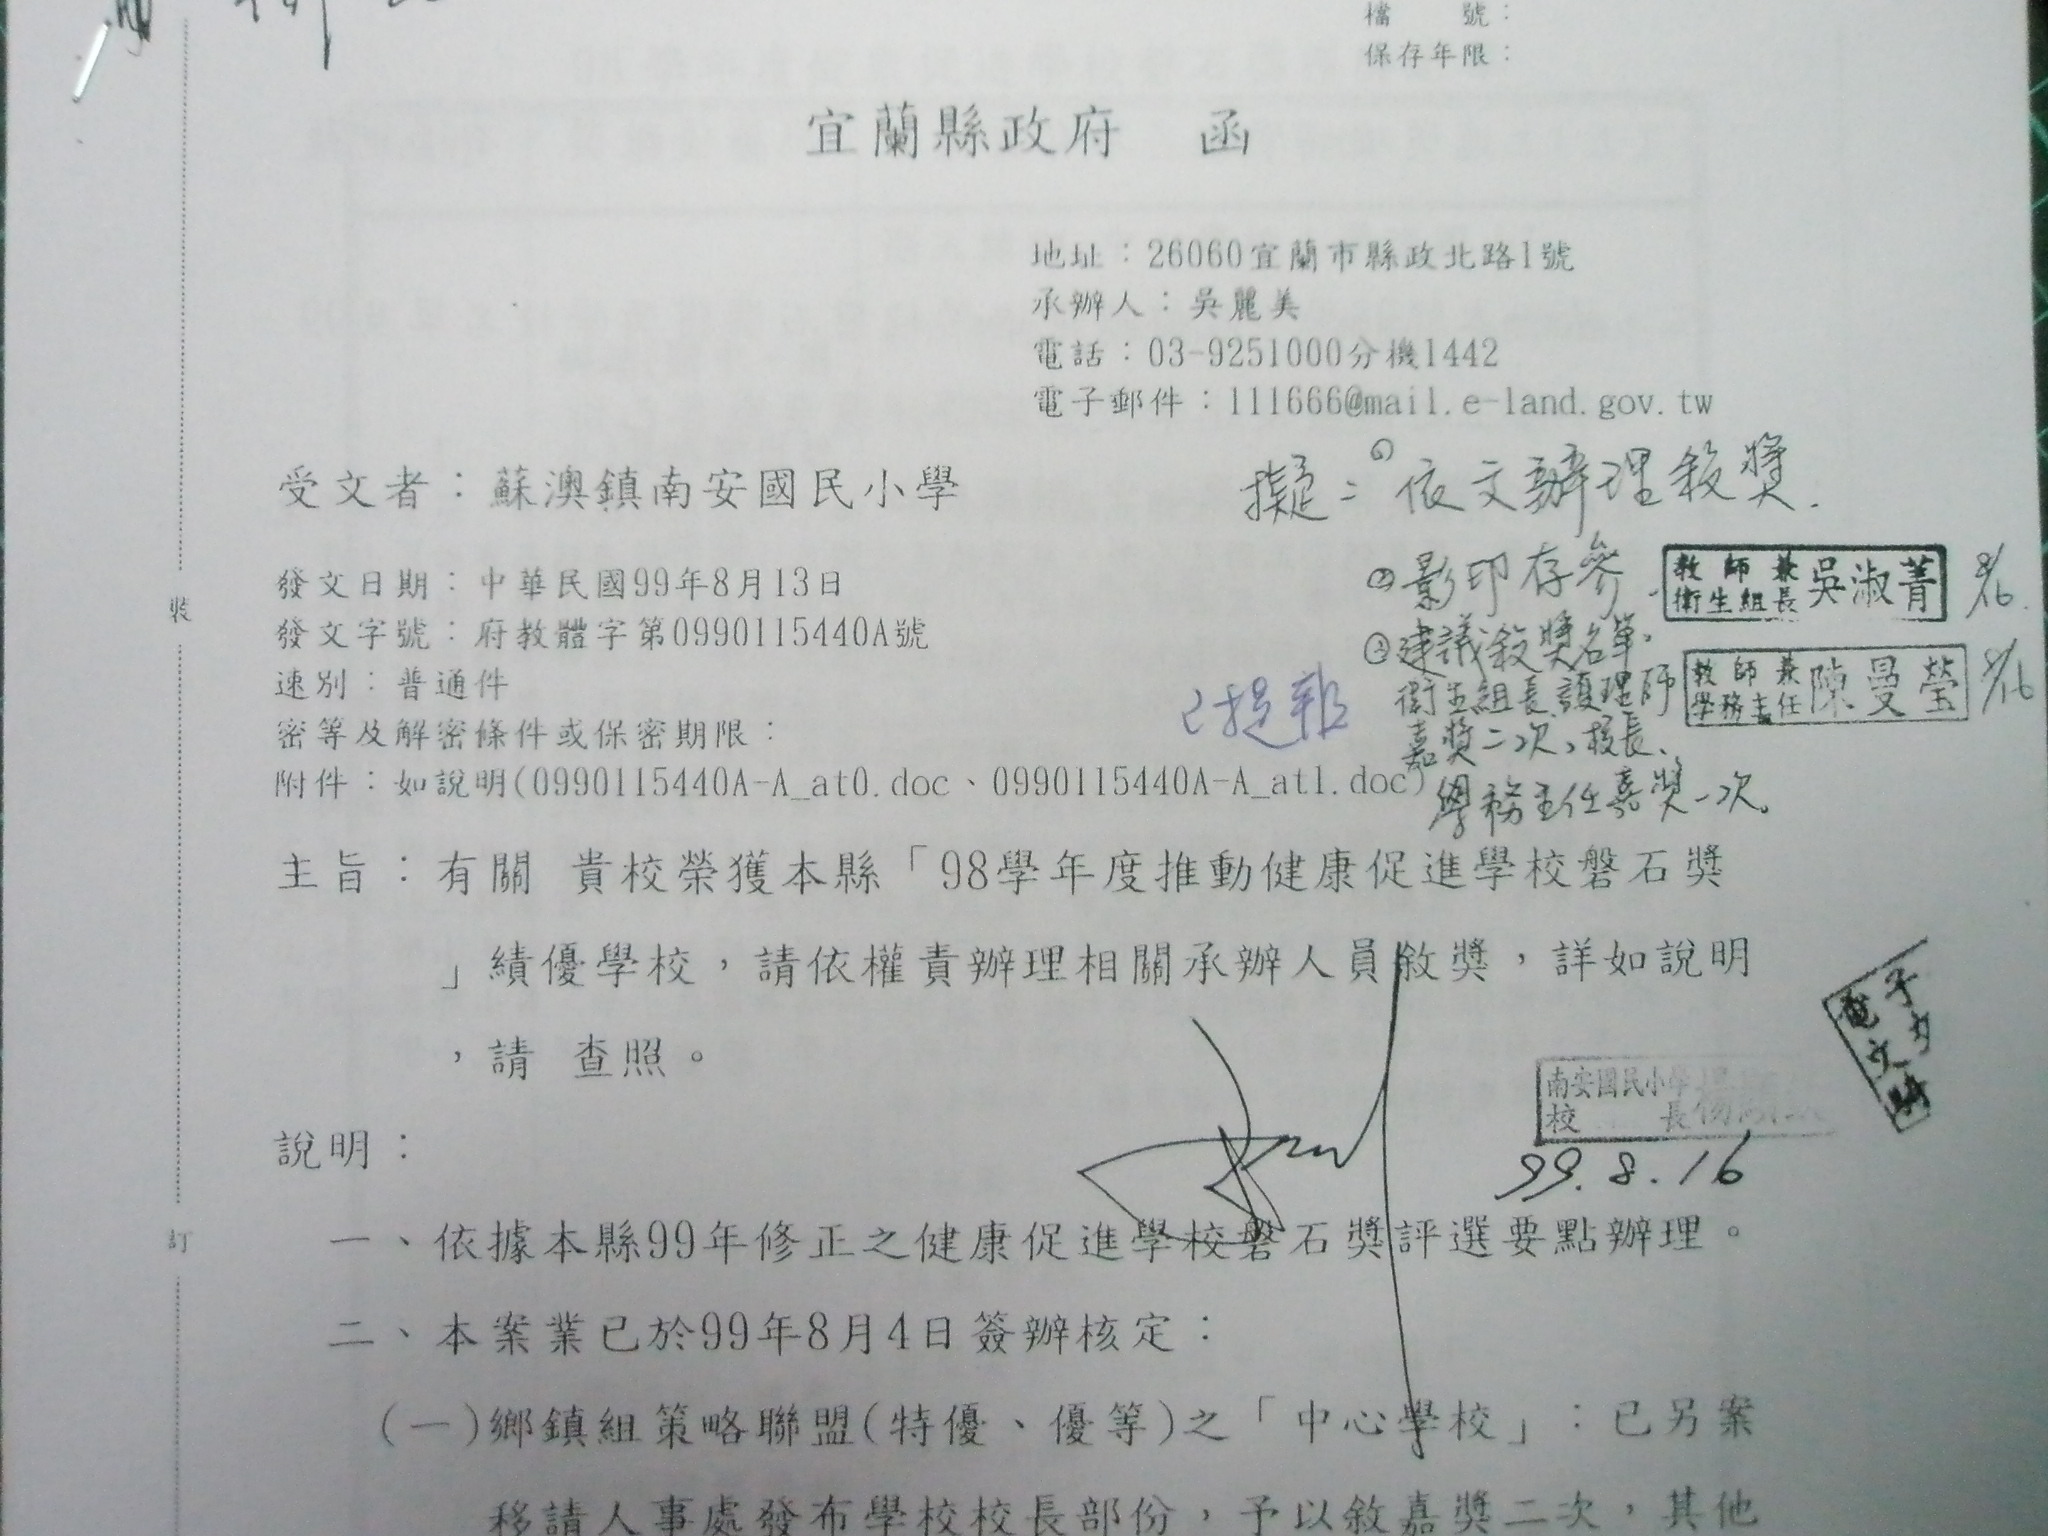 檔　　號：
保存年限：
宜蘭縣政府　函
地址：26060宜蘭市縣政北路1號
承辦人：吳麗美
電話：03-9251000分機1442
電子郵件：111666@mail.e-land.gov.tw
受文者：蘇澳鎮南安國民小學
擬：①依文辦理敘獎.
發文日期：中華民國99年8月13日
②影印存參.
教師兼衛生組長 吳淑菁 8/16.
發文字號：府教體字第0990115440A號
③建議敘獎名單,
速別：普通件
衛生組長、護理師
教師兼學務主任 陳曼瑩 8/16
已提報
密等及解密條件或保密期限：
嘉獎二次、校長、
附件：如說明(0990115440A-A_at0.doc、0990115440A-A_at1.doc)
學務主任嘉獎一次。
主旨：有關 貴校榮獲本縣「98學年度推動健康促進學校磐石獎
」績優學校，請依權責辦理相關承辦人員敘獎，詳如說明
，請 查照。
南安國民小學
校長
99.8.16
說明：
一、依據本縣99年修正之健康促進學校磐石獎評選要點辦理。
二、本案業已於99年8月4日簽辦核定：
(一)鄉鎮組策略聯盟(特優、優等)之「中心學校」：已另案
移請人事處發布學校校長部份，予以敘嘉獎二次，其他
裝
訂